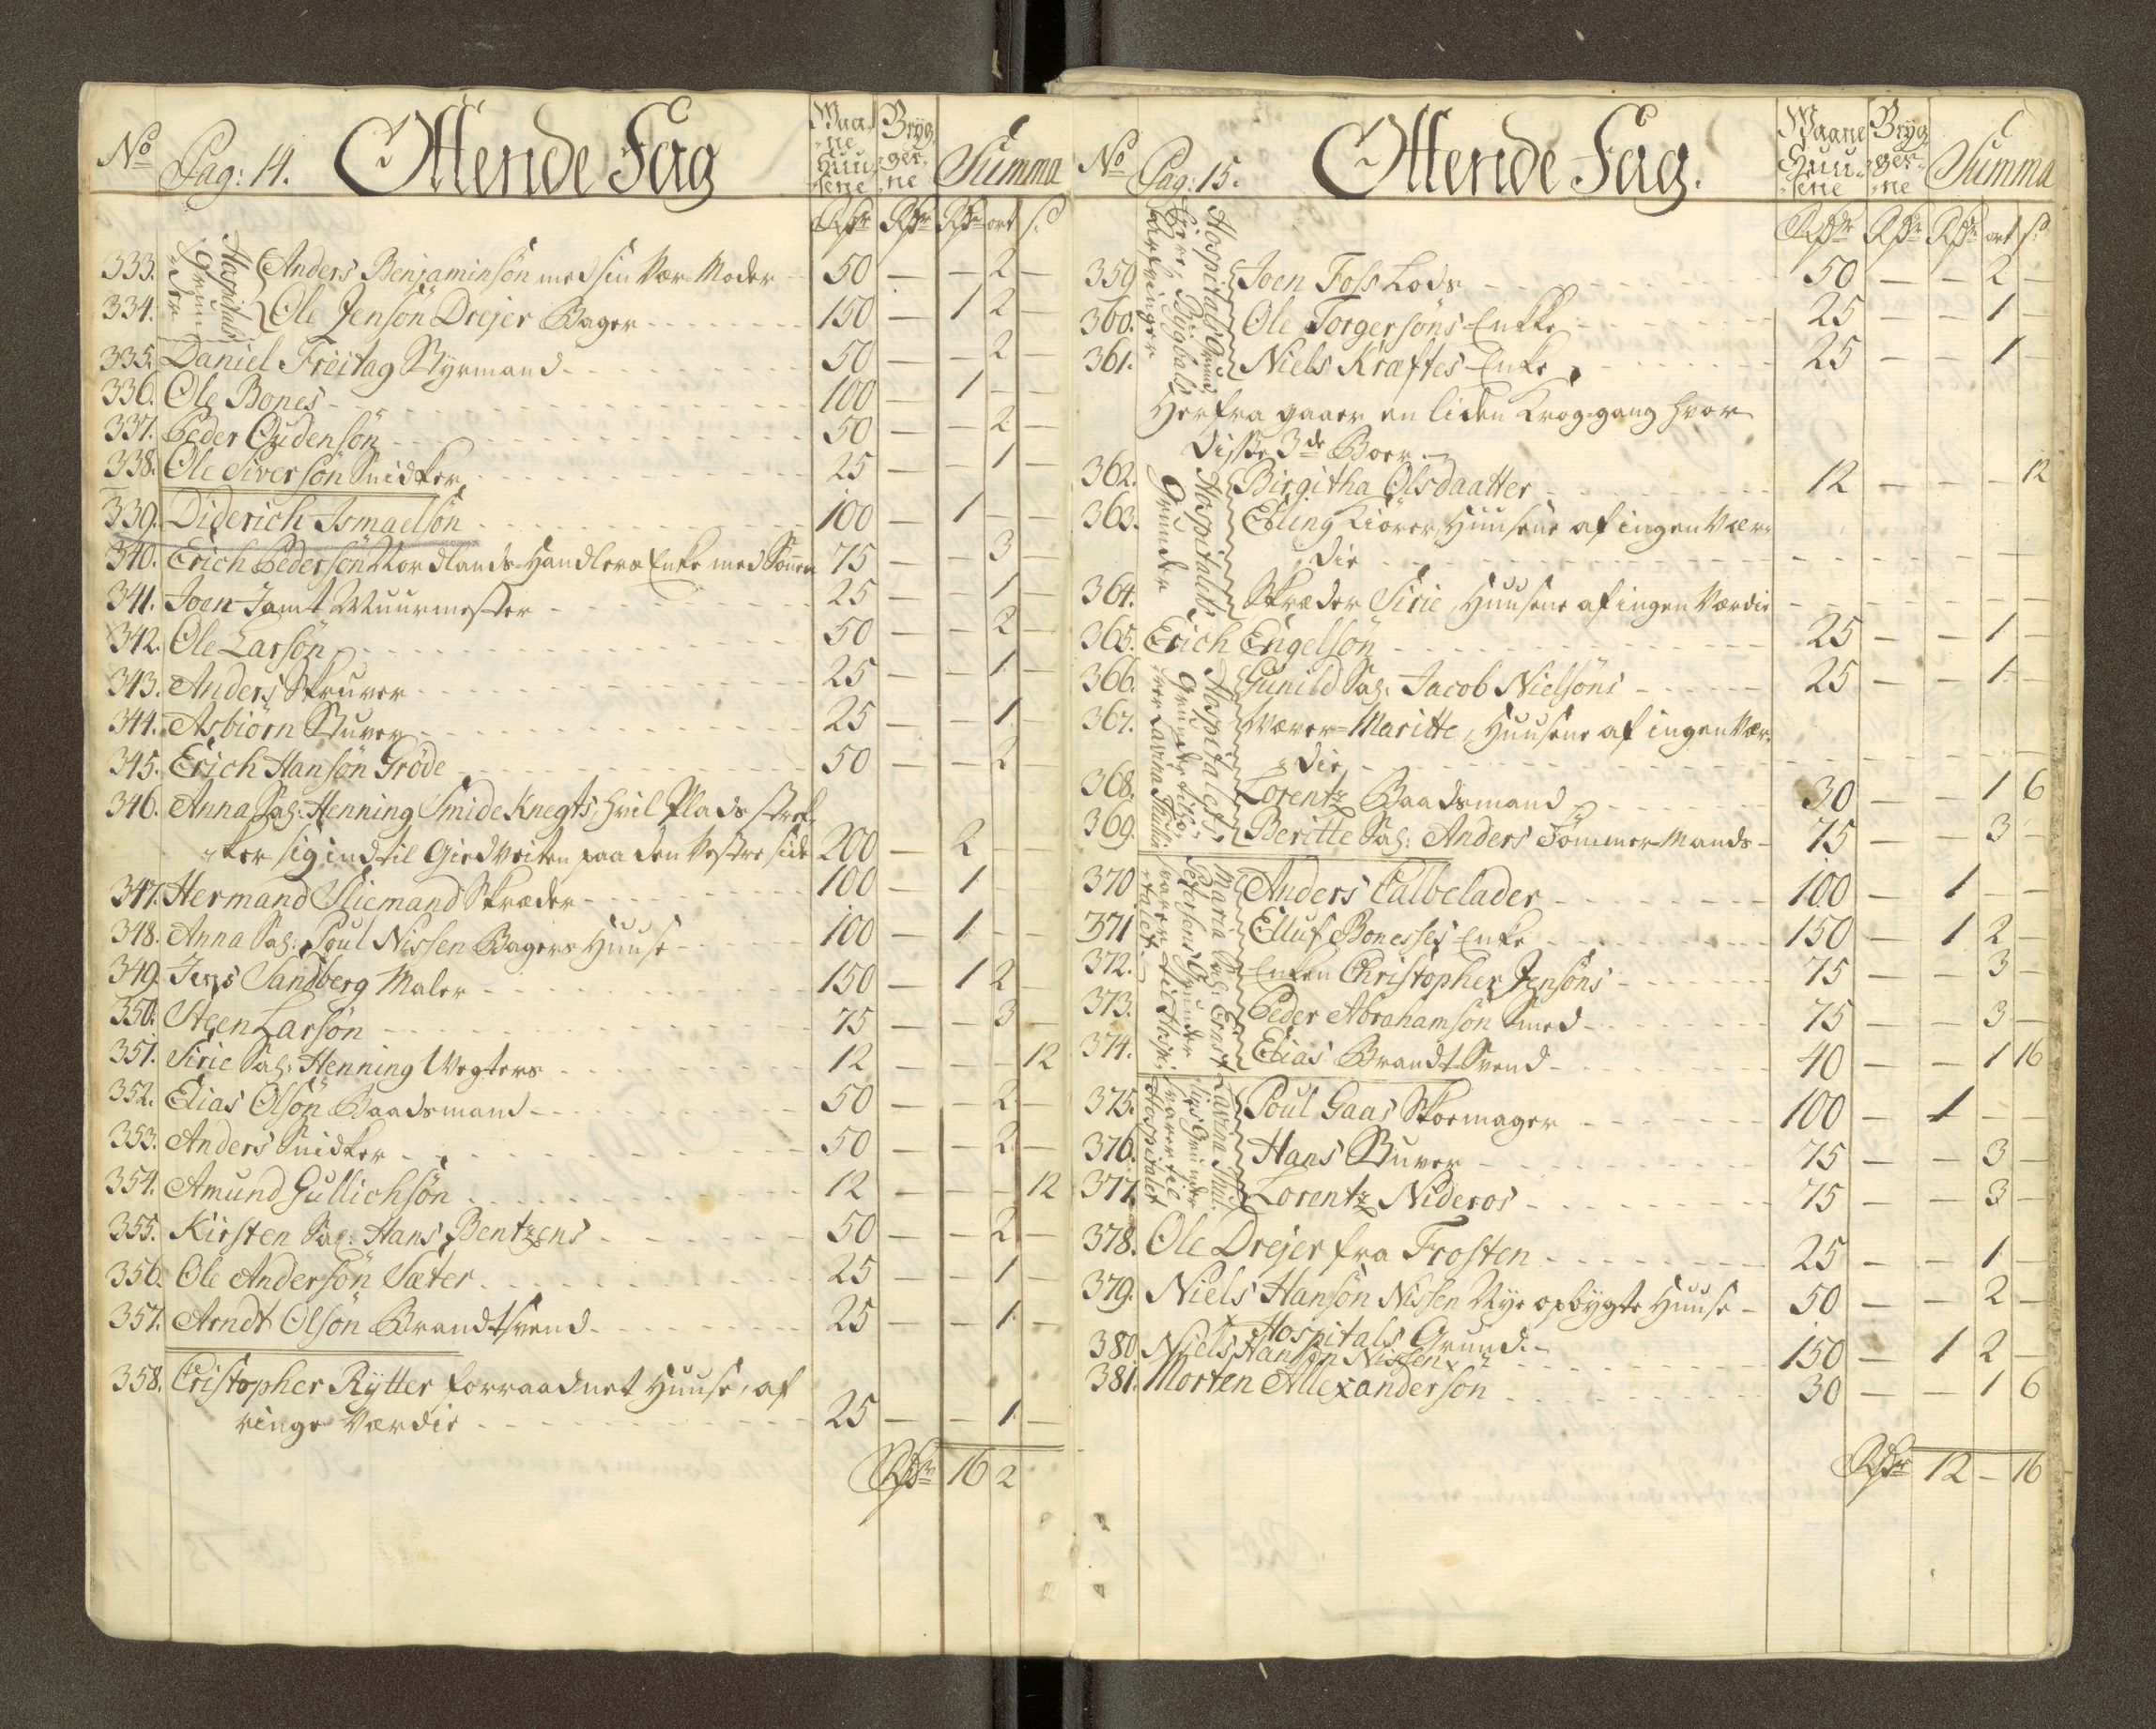 No Pag: 14. Ottende Fag Waa-ne Huu-sene Bryg-ger-ne Summa
Rdr Rdr Rdr ort s.
Hospitals Grunder
333. Anders Benjaminsön med sin Vær-Moder 50 — — 2 —
334. Ole Jensön Drejer Bager 150 — 1 2 —
335. Daniel Freitag Styrmand 50 — — 2
336. Ole Bones 100 — 1 — —
337. Peder Oudensön 50 — — 2 —
338. Ole Siversön Snidker 25 — — 1 —
339. Diderich Ismaelsön 100 — 1 — —
340. Erich Pedersön Nordlands-Handlers Enke med Sönnen 75 — — 3 —
341. Joen Jamt Muurmester 25 — — 1 —
342. Ole Larsön 50 — — 2 —
343. Anders Skruver 25 — — 1 —
344. Asbiörn Stuver 25 — — 1 —
345. Erich Hansön Gröde 50 — — 2 —
346. Anna Sal: Henning Smide Knegts, hvil Plads stræk-
ker sig ind til Giedveiten paa den Vestre side 200 — 2 — —
347. Hermand Sliemand Skræder 100 — 1 — —
348. Anna Sal: Poul Nissen Bagers Huuse 100 — 1 — —
349. Jens Sandberg Maler 150 — 1 2 —
350. Steen Larsön 75 — — 3 —
351. Sirie Sal: Henning Vegters 12 — — — 12
352. Elias Olsön Baadsmand 50 — — 2 —
353. Anders Snidker 50 — — 2 —
354. Amund Gullichsön 12 — — — 12
355. Kirsten Sal: Hans Bentzens 50 — — 2 —
356. Ole Andersön Sæter 25 — — 1 —
357. Arndt Olsön Brandtsvend 25 — — 1 —
358. Cristopher Rÿtter forraadnet Huuse, af
ringe Værdie 25 — — 1 —
Rdr 16 2
No Pag: 15. Ottende Fag. Waane Huu-sene Bryg-ger-ne Summa
Rdr Rdr Rdr ort s.
Hospitals Grund
359 Joen Foss Lods 50 — — 2 —
360. Ole Torgersöns Enkke 25 — — 1 —
361. Niels Kræftes Enke 25 — — 1 —
Herfra gaaer en liden Krog-gang hvor
disse 3de Boer.
Hospitalets Grunder
362. Birgitha Olsdaatter 12 — — — 12
363. Ebling Kiörer, Huusene af ingen Vær-
die — — — — —
364. Skræder Sirie, Huusene af ingen Værdie — — — — —
365. Erich Engelsön 25 — — 1 —
Hospitalets Grunder
366. Gunild Sal: Jacob Nielsöns 25 — — 1 —
367. Væver-Maritte, Huusene af ingen Vær-
die — — — — —
368. Lorentz Baadsmand 30 — — 1 6
369. Beritte Sal: Anders Tömmer-Mands 75 — — 3 —
Maria Sal: Ernst Petersens Grunder svarer til Hospitalet.
370 Anders Calbelader 100 — 1 — —
371 Elluf Bonesses Enke 150 — 1 2 —
372. Enken Christopher Jensöns 75 — — 3 —
373. Peder Abrahamsön Smed 75 — — 3 —
374. Elias Brandt-Svend 40 — — 1 16
Grunder svarer til Hospitalet
375. Poul Gaas Skoemager 100 — 1 — —
376. Hans Stuver 75 — — 3 —
377. Lorentz Nideros 75 — — 3 —
378. Ole Drejer fra Frosten 25 — — 1 —
379. Niels Hansön Nissen Nye opbygte Huuse 50 — — 2 —
+ Hospitals Grund.
380. Niels Hansön Nissen x 150 — 1 2 —
381. Morten Allexandersön 30 — — 1 6
Rdr 12 — 16